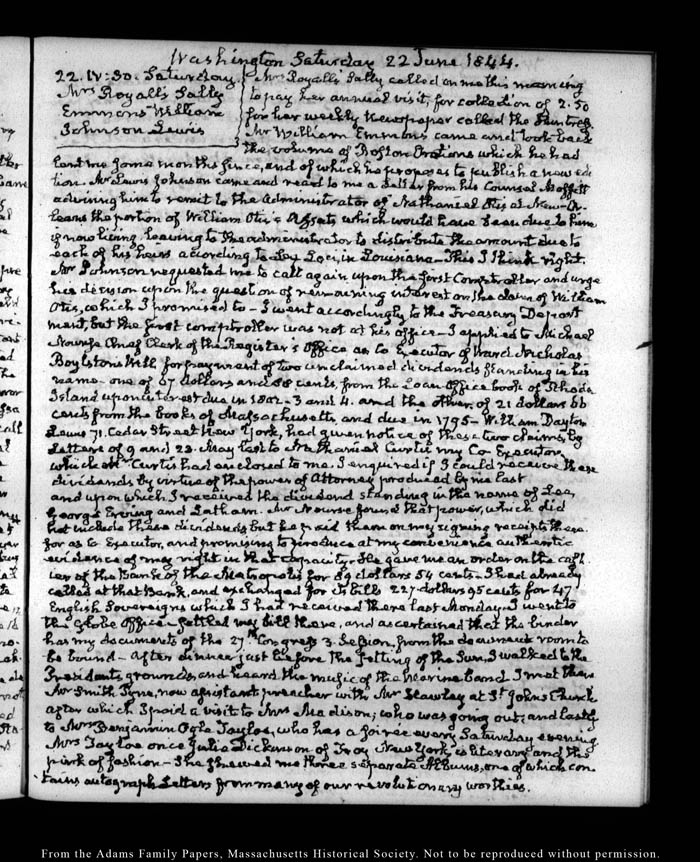 Washington Saturday 22 June 1844.
22. IV:30. Saturday
Mrs Royall's Sally
Emmons William
Johnson Lewis
Mrs Royall's Sally called on me this morning
to pay her annual visit, for collection of 2.50
for her weekly Newspaper called the Huntress
Mr William Emmons came and took back
the volume of Boston Orations which he had
lent me some months since, and of which he proposes to publish a new edi
tion. Mr Lewis Johnson came and read to me a Letter from his Counsel Moffett
advising him to remit to the Administrator of Nathaniel Otis at New-Or
leans the portion of William Otis's Assets which would have been due to him
if now living, leaving to the administrator to distribute the amount due to
each of his heirs according to Lex Loci, in Louisiana. This I think right.
Mr Johnson requested me to call again upon the first Comptroller and urge
his decision upon the question of remaining interest on the claim of William
Otis, which I promised to. I went accordingly to the Treasury Depart
ment, but the first comptroller was not at his office. I applied to Michael
Nourse Chief Clerk of the Register's Office as to Executor of Ward Nicholas
Boylston's Will for payment of two unclaimed dividends standing in his
name. one of 67 dollars and 88 cents, from the Loan Office book of Rhode
Island upon interest due in 1802-3 and 4. and the other, of 21 dollars 66
cents from the books of Massachusetts, and due in 1795 - William Dayton
Lewis 71. Cedar Street New York, had given notice of these two claims, by
Letters of 9 and 23. May last to Nathaniel Curtis my Co Executor,
which Mr Curtis had enclosed to me. I enquired if I could receive these
dividends by virtue of the power of Attorney produced by me last
and upon which I received the dividend standing in the name of Lee,
George Erving and Latham. Mr Nourse found that power, which did
not include these dividends but he paid them on my signing receipts there
for as to Executor, and promising to produce at my convenience authentic
evidence of my right in that capacity. He gave me an order on the cash
ier of the Bank of the Metropolis for 89 dollars 54 cents. I had already
called at that Bank, and exchanged for its bills 227 dollars 95 cents for 47
English Sovereigns which I had received there last Monday. I went to
the Globe Office - settled my bill there, and ascertained that the binder
has my documents of the 27th Congress 3. Session, from the document room to
be bound - After dinner just before the setting of the Sun, I walked to the
Presidents grounds, and heard the music of the marine band. I met there
Mr Smith Pyne, now assistant preacher with Mr Hawley at St. Johns Church
after which I paid a visit to Mrs Madison; who was going out; and lastly
to Mrs Benjamin Ogle Tayloe, who has a soiree every Saturday evening.
Mrs Tayloe once Julia Dickinson of Troy, New York, is literary and the
pink of fashion - She shewed me three separate Albums, one of which con
tains autograph Letters from many of our revolutionary worthies.
From the Adams Family Papers, Massachusetts Historical Society. Not to be reproduced without permission.